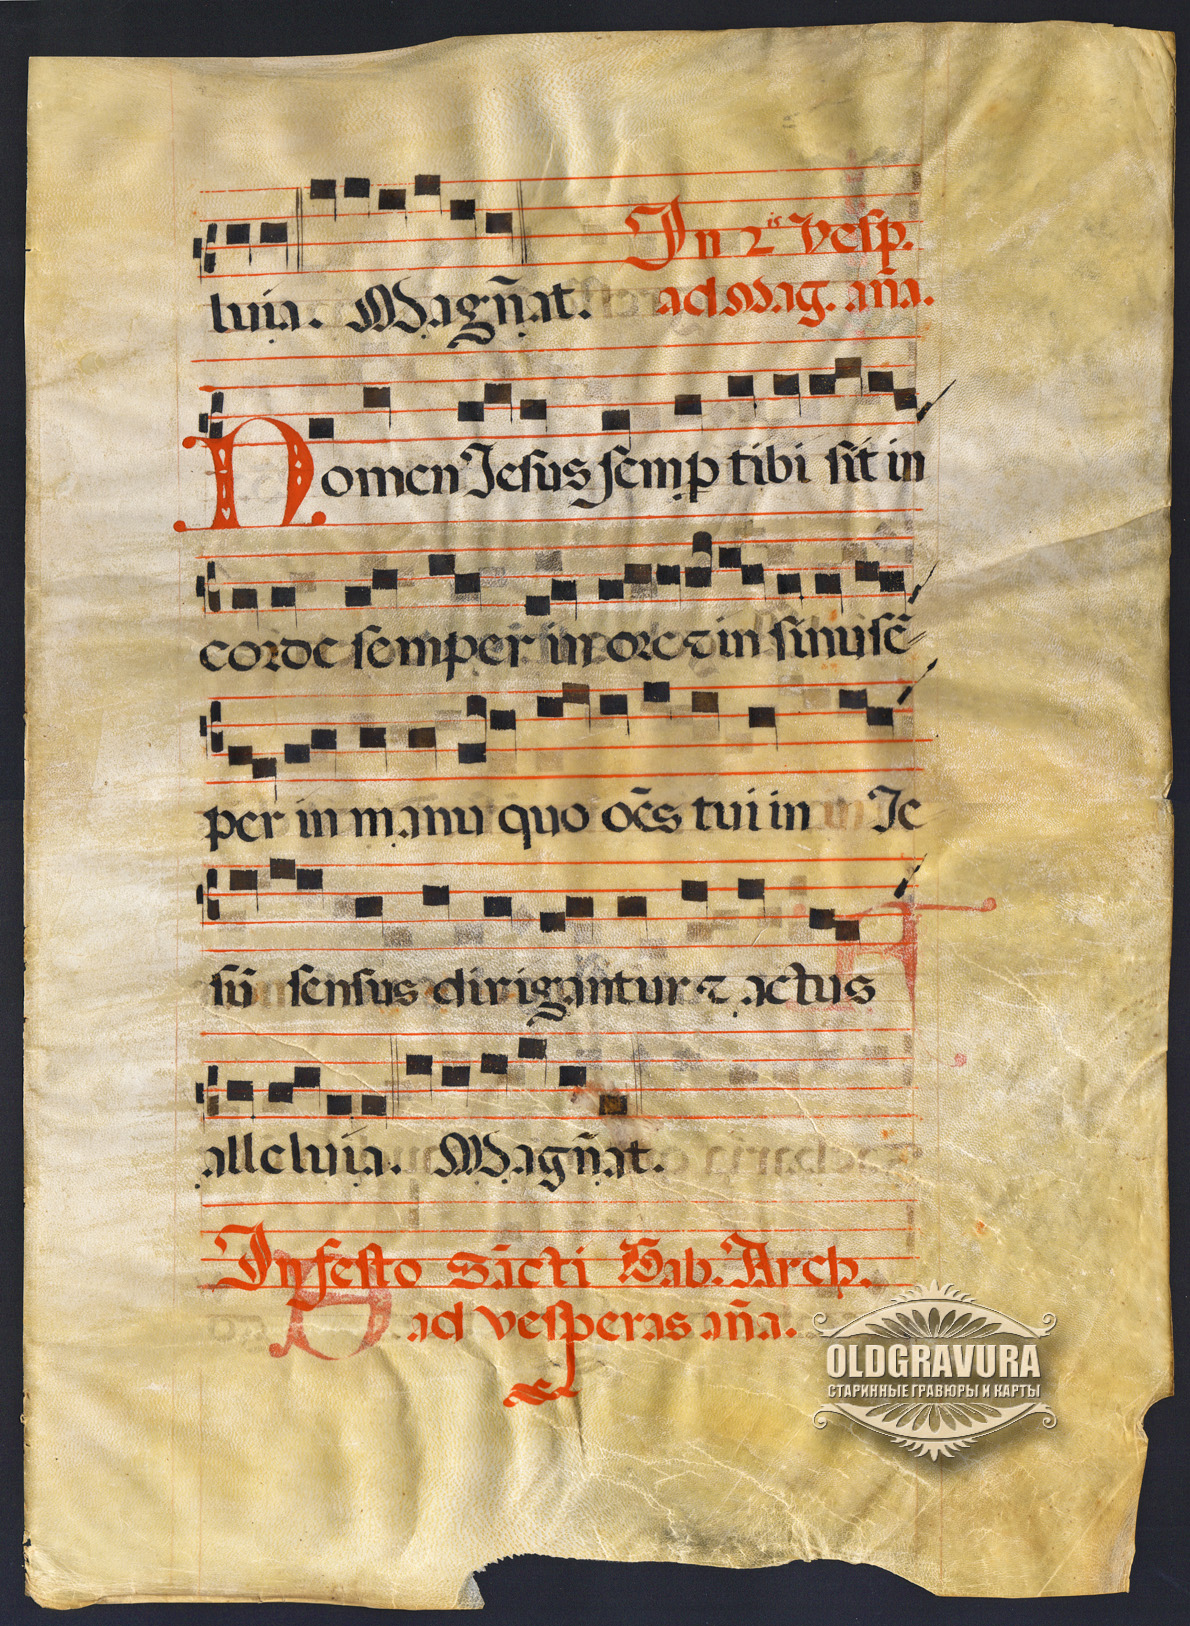 In 2is Vesp.
luia. Magn̄at. ad Mag. an̄a.
Nomen Jesus semp tibi sit in
corde semper in ore ⁊ in sinu sē
per in manu quo oēs tui in Je
sū sensus dirigantur ⁊ actus
alleluia. Magn̄at.
In festo Sācti Gab. Arch.
ad vesperas an̄a.
OLDGRAVURA
СТАРИННЫЕ ГРАВЮРЫ И КАРТЫ